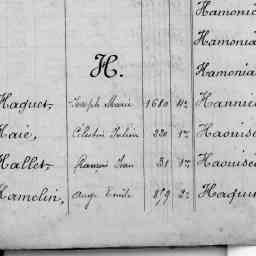 Hamonic
Hamonia
Hamonia
H.
Haguet, Joseph Marie 1680 4e Hannie
Haie, Célestin Julien 220 1re Haouise
Hallet, François Jean 31 1re Haouise
Hamelin, Ange Emile 819 2e Haquin